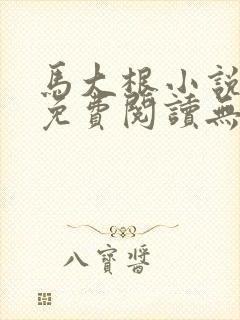 馬大根小說
免費閱讀無
八寶醬